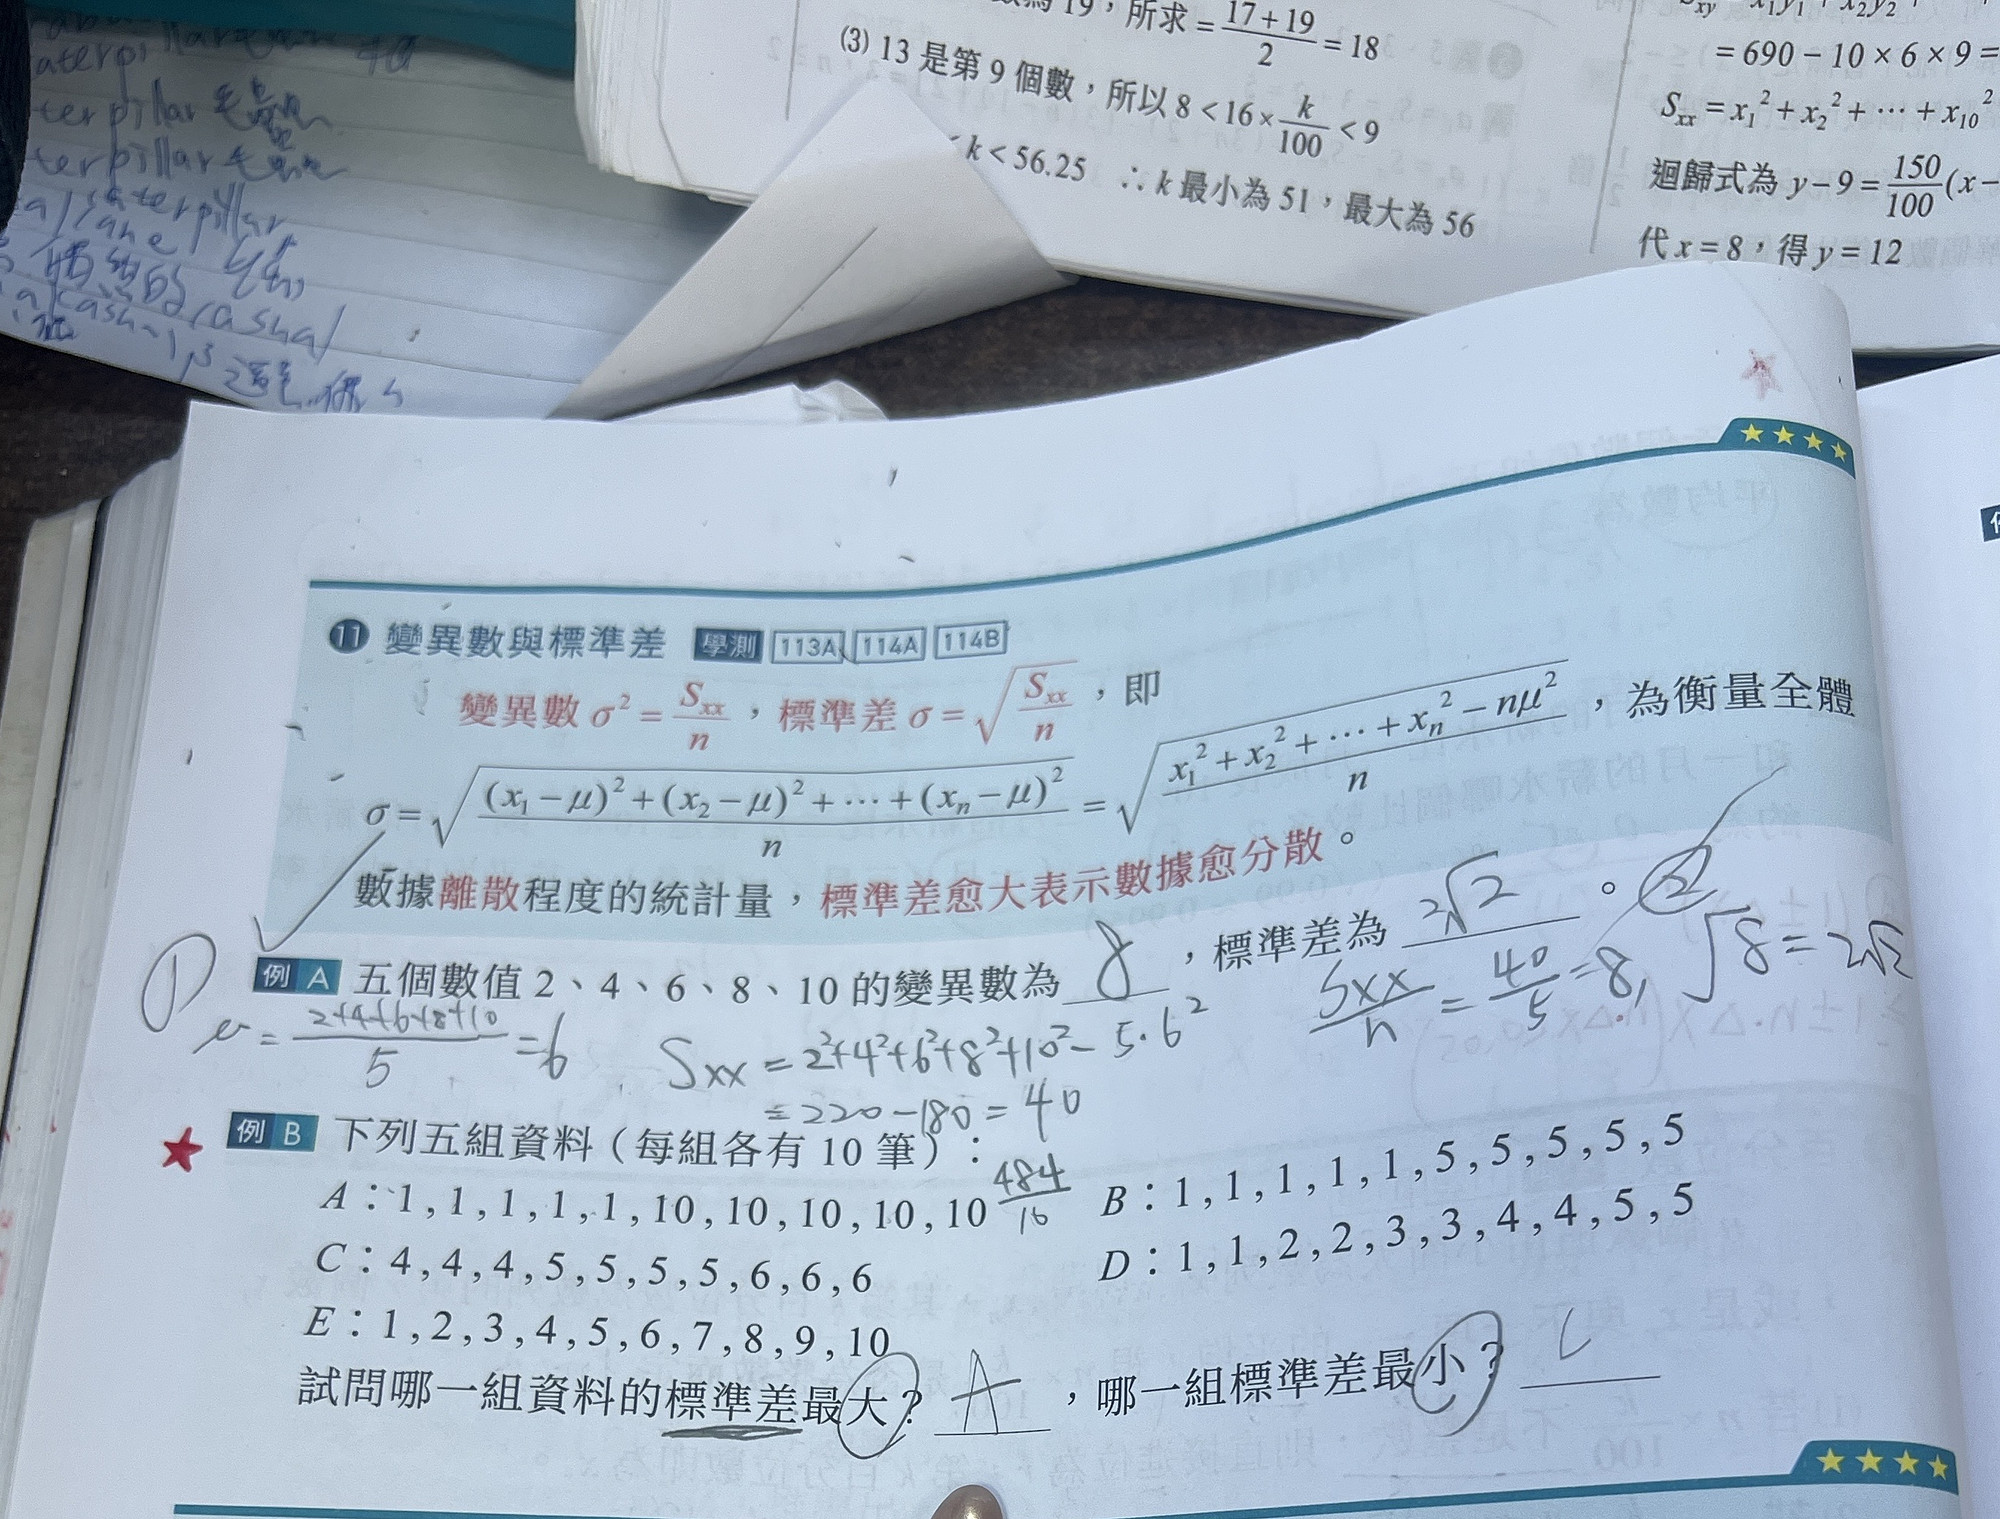 aterpillar
terpillar 毛
terpillar 毛
caterpillar
數為 19，所求 = \frac{17+19}{2} = 18
(3) 13 是第 9 個數，所以 8 < 16 × \frac{k}{100} < 9
< k < 56.25 ∴ k 最小為 51，最大為 56
= 690 − 10 × 6 × 9 =
S_{xx} = x_1^2 + x_2^2 + ⋯ + x_{10}^2
迴歸式為 y − 9 = \frac{150}{100}(x −
代 x = 8，得 y = 12
11 變異數與標準差 學測 113A 114A 114B
變異數 σ^2 = \frac{S_{xx}}{n}，標準差 σ = \sqrt{\frac{S_{xx}}{n}}，即
σ = \sqrt{\frac{(x_1−μ)^2+(x_2−μ)^2+⋯+(x_n−μ)^2}{n}} = \sqrt{\frac{x_1^2+x_2^2+⋯+x_n^2−nμ^2}{n}}，為衡量全體
數據離散程度的統計量，標準差愈大表示數據愈分散。
① 例 A 五個數值 2、4、6、8、10 的變異數為 8，標準差為 2√2。②
μ = \frac{2+4+6+8+10}{5} = 6
Sxx = 2^2+4^2+6^2+8^2+10^2 − 5·6^2
= 220 − 180 = 40
\frac{Sxx}{n} = \frac{40}{5} = 8, √8 = 2√2
例 B 下列五組資料（每組各有 10 筆）：
A：1 , 1 , 1 , 1 , 1 , 10 , 10 , 10 , 10 , 10
B：1 , 1 , 1 , 1 , 1 , 5 , 5 , 5 , 5 , 5
C：4 , 4 , 4 , 5 , 5 , 5 , 5 , 6 , 6 , 6
D：1 , 1 , 2 , 2 , 3 , 3 , 4 , 4 , 5 , 5
E：1 , 2 , 3 , 4 , 5 , 6 , 7 , 8 , 9 , 10
試問哪一組資料的標準差最大？ A ，哪一組標準差最小？ C